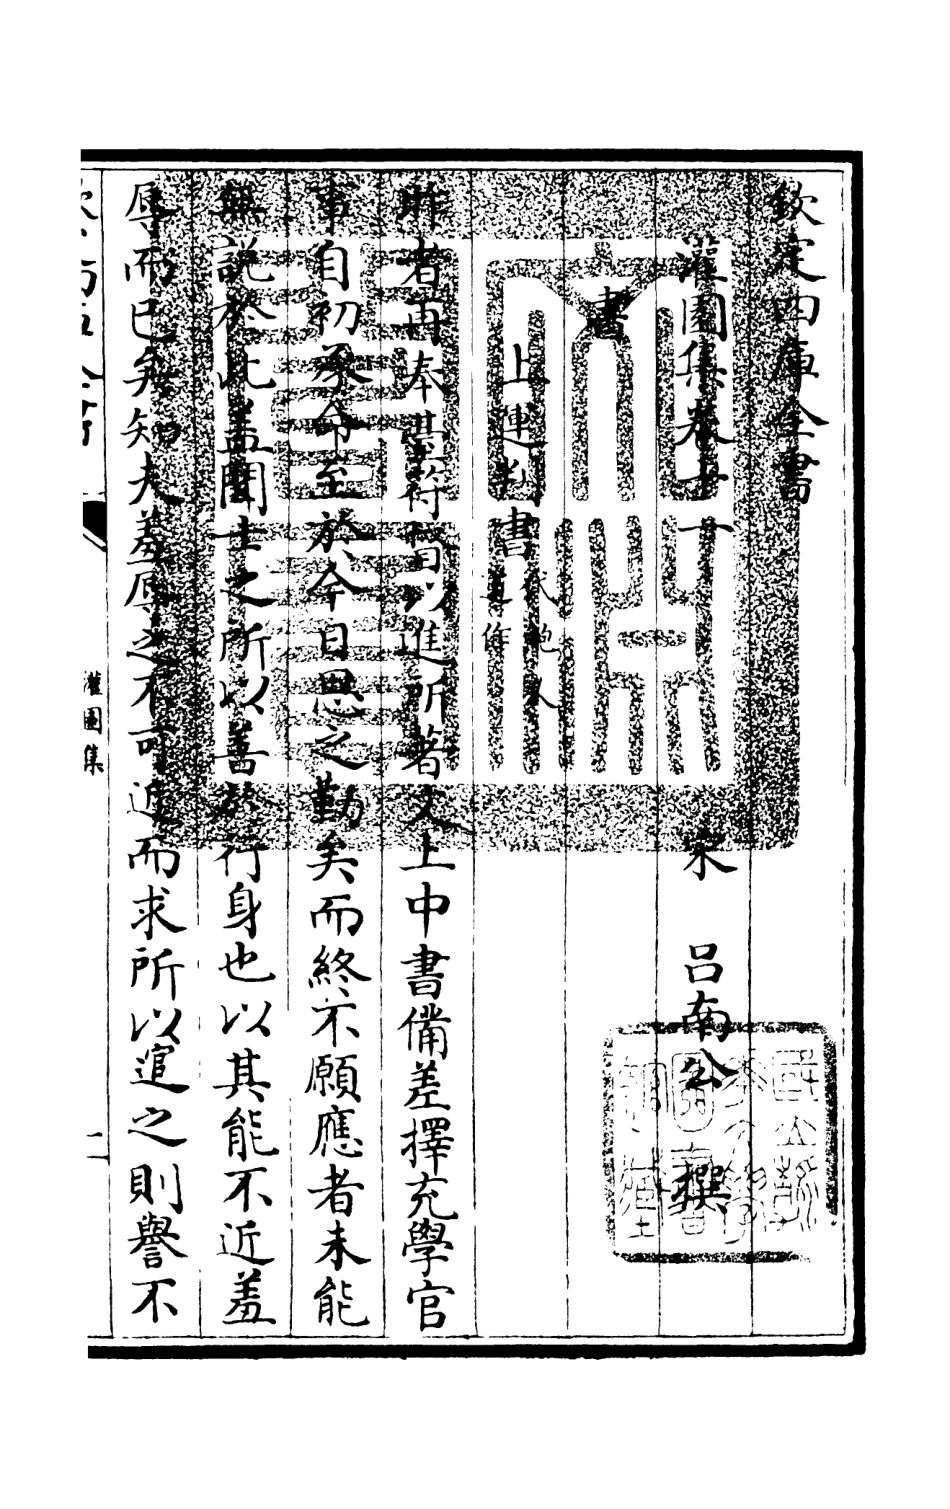 欽定四庫全書
灌園集卷十一
宋 呂南公 撰
書
上運判書
昨者再奉甚符督以進所著文上中書備差擇充學官
事自初承命至於今日思之勤矣而終不願應者未能
無說於此蓋聞士之所以善於行身也以其能不近羞
辱而已矣知夫羞辱之不可近而求所以逭之則譽不
灌園集